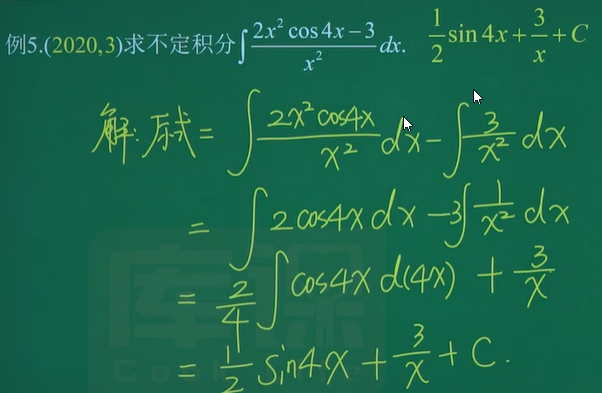 例5.(2020,3)求不定积分∫(2x² cos 4x − 3)/x² dx. 1/2 sin 4x + 3/x + C
解:原式 = ∫ 2x² cos4x / x² dx − ∫ 3/x² dx
= ∫ 2 cos4x dx − 3∫ 1/x² dx
= 2/4 ∫ cos4x d(4x) + 3/x
= 1/2 sin4x + 3/x + C.
库课